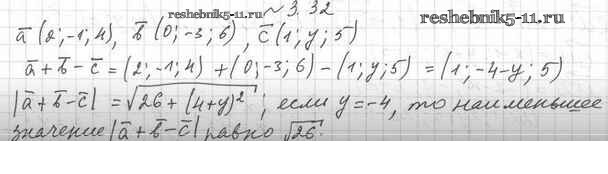 reshebnik5-11.ru № 3.32 www.reshebnik5-11.ru
a̅ (2;-1;4), b̅ (0;-3;6), c̅ (1;y;5)
a̅+b̅-c̅ = (2;-1;4) +(0;-3;6) - (1;y;5) = (1;-4-y;5)
|a̅+b̅-c̅| = √(26+(4+y)²); если y=-4, то наименьшее
значение |a̅+b̅-c̅| равно √26.